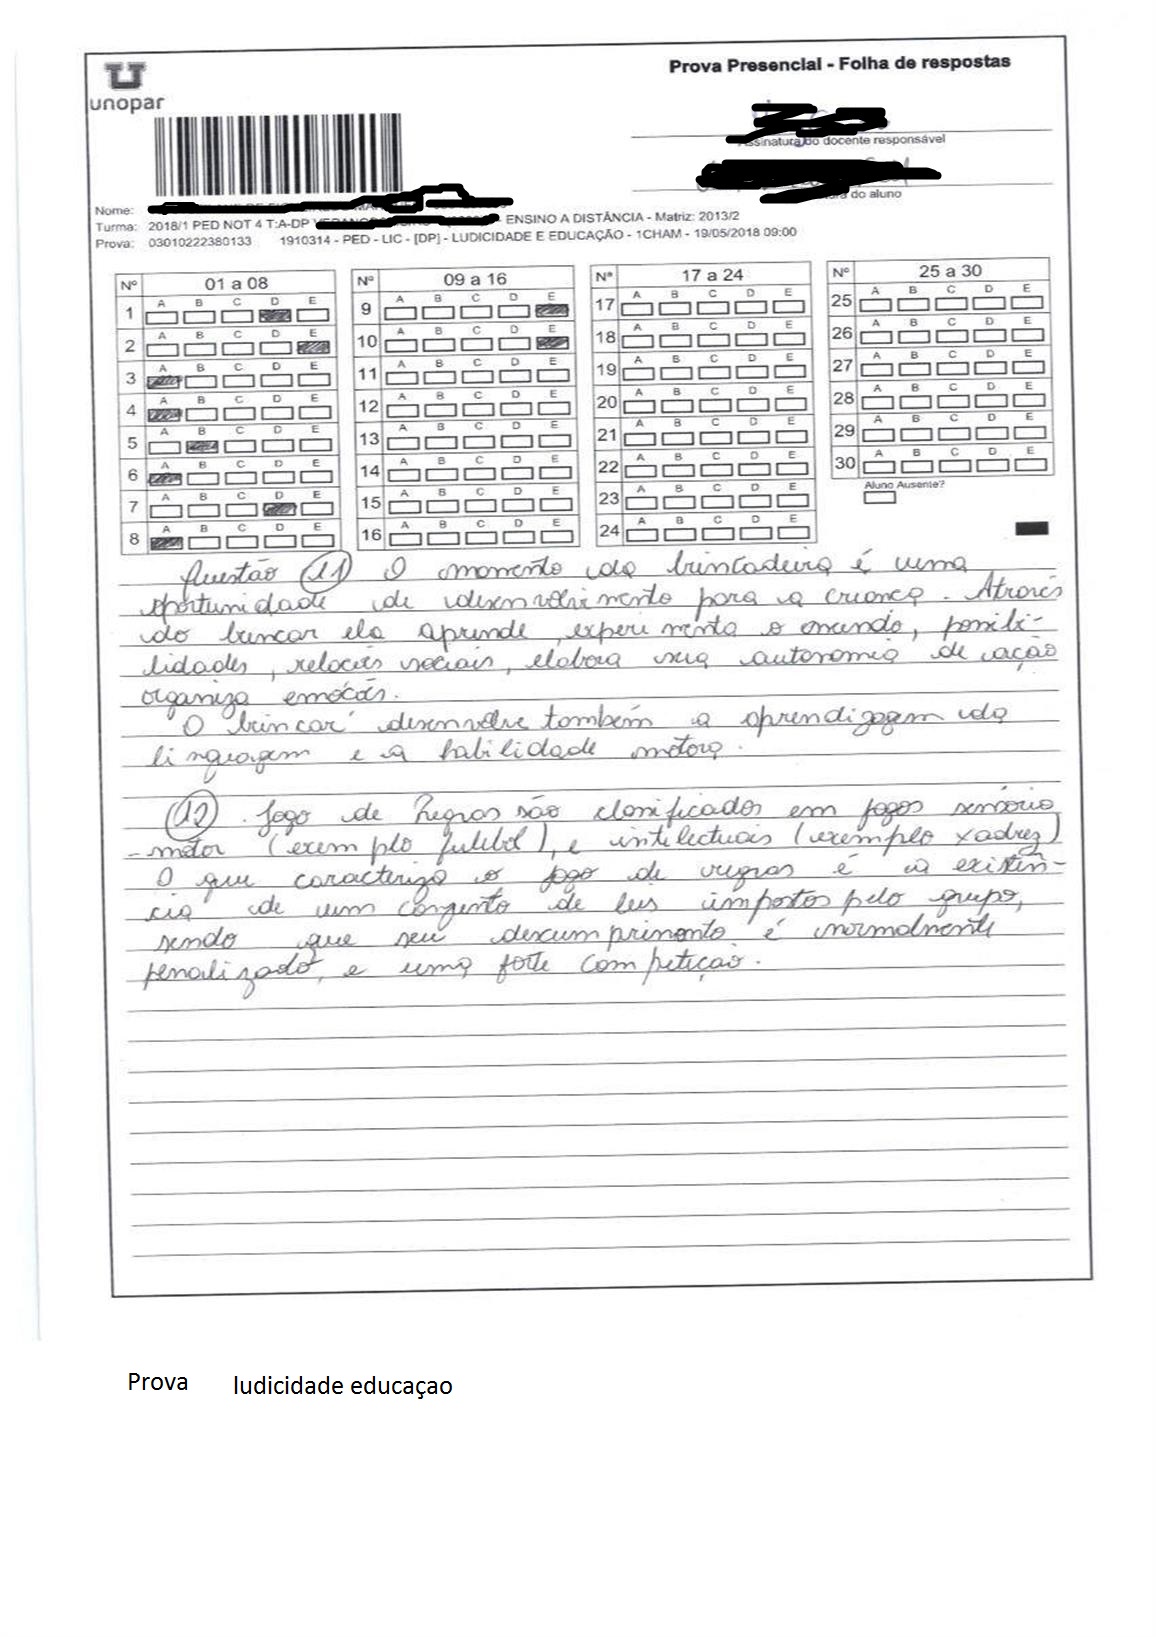 unopar
Prova Presencial - Folha de respostas
Assinatura do docente responsável
do aluno
Nome:
Turma: 2018/1 PED NOT 4 T:A-DP - ENSINO A DISTÂNCIA - Matriz: 2013/2
Prova: 03010222380133 1910314 - PED - LIC - [DP] - LUDICIDADE E EDUCAÇÃO - 1CHAM - 19/05/2018 09:00
Nº 01 a 08
A B C D E
1
A B C D E
2
A B C D E
3
A B C D E
4
A B C D E
5
A B C D E
6
A B C D E
7
A B C D E
8
Nº 09 a 16
A B C D E
9
A B C D E
10
A B C D E
11
A B C D E
12
A B C D E
13
A B C D E
14
A B C D E
15
A B C D E
16
Nº 17 a 24
A B C D E
17
A B C D E
18
A B C D E
19
A B C D E
20
A B C D E
21
A B C D E
22
A B C D E
23
A B C D E
24
Nº 25 a 30
A B C D E
25
A B C D E
26
A B C D E
27
A B C D E
28
A B C D E
29
A B C D E
30
Aluno Ausente?
Questão 11) O momento da brincadeira é uma
oportunidade de desenvolvimento para a criança. Através
do brincar ela aprende, experimenta o mundo, possibi-
lidades, relações sociais, elabora sua autonomia de ação
organiza emoções.
O brincar desenvolve também a aprendizagem da
linguagem e a habilidade motora.
12). Jogo de Regras são classificados em jogos sensório
-motor (exemplo futebol), e intelectuais (exemplo xadrez)
O que caracteriza o jogo de regras é a existên-
cia de um conjunto de leis impostos pelo grupo,
sendo que seu descumprimento é normalmente
penalizado, e uma forte competição.
Prova ludicidade educaçao